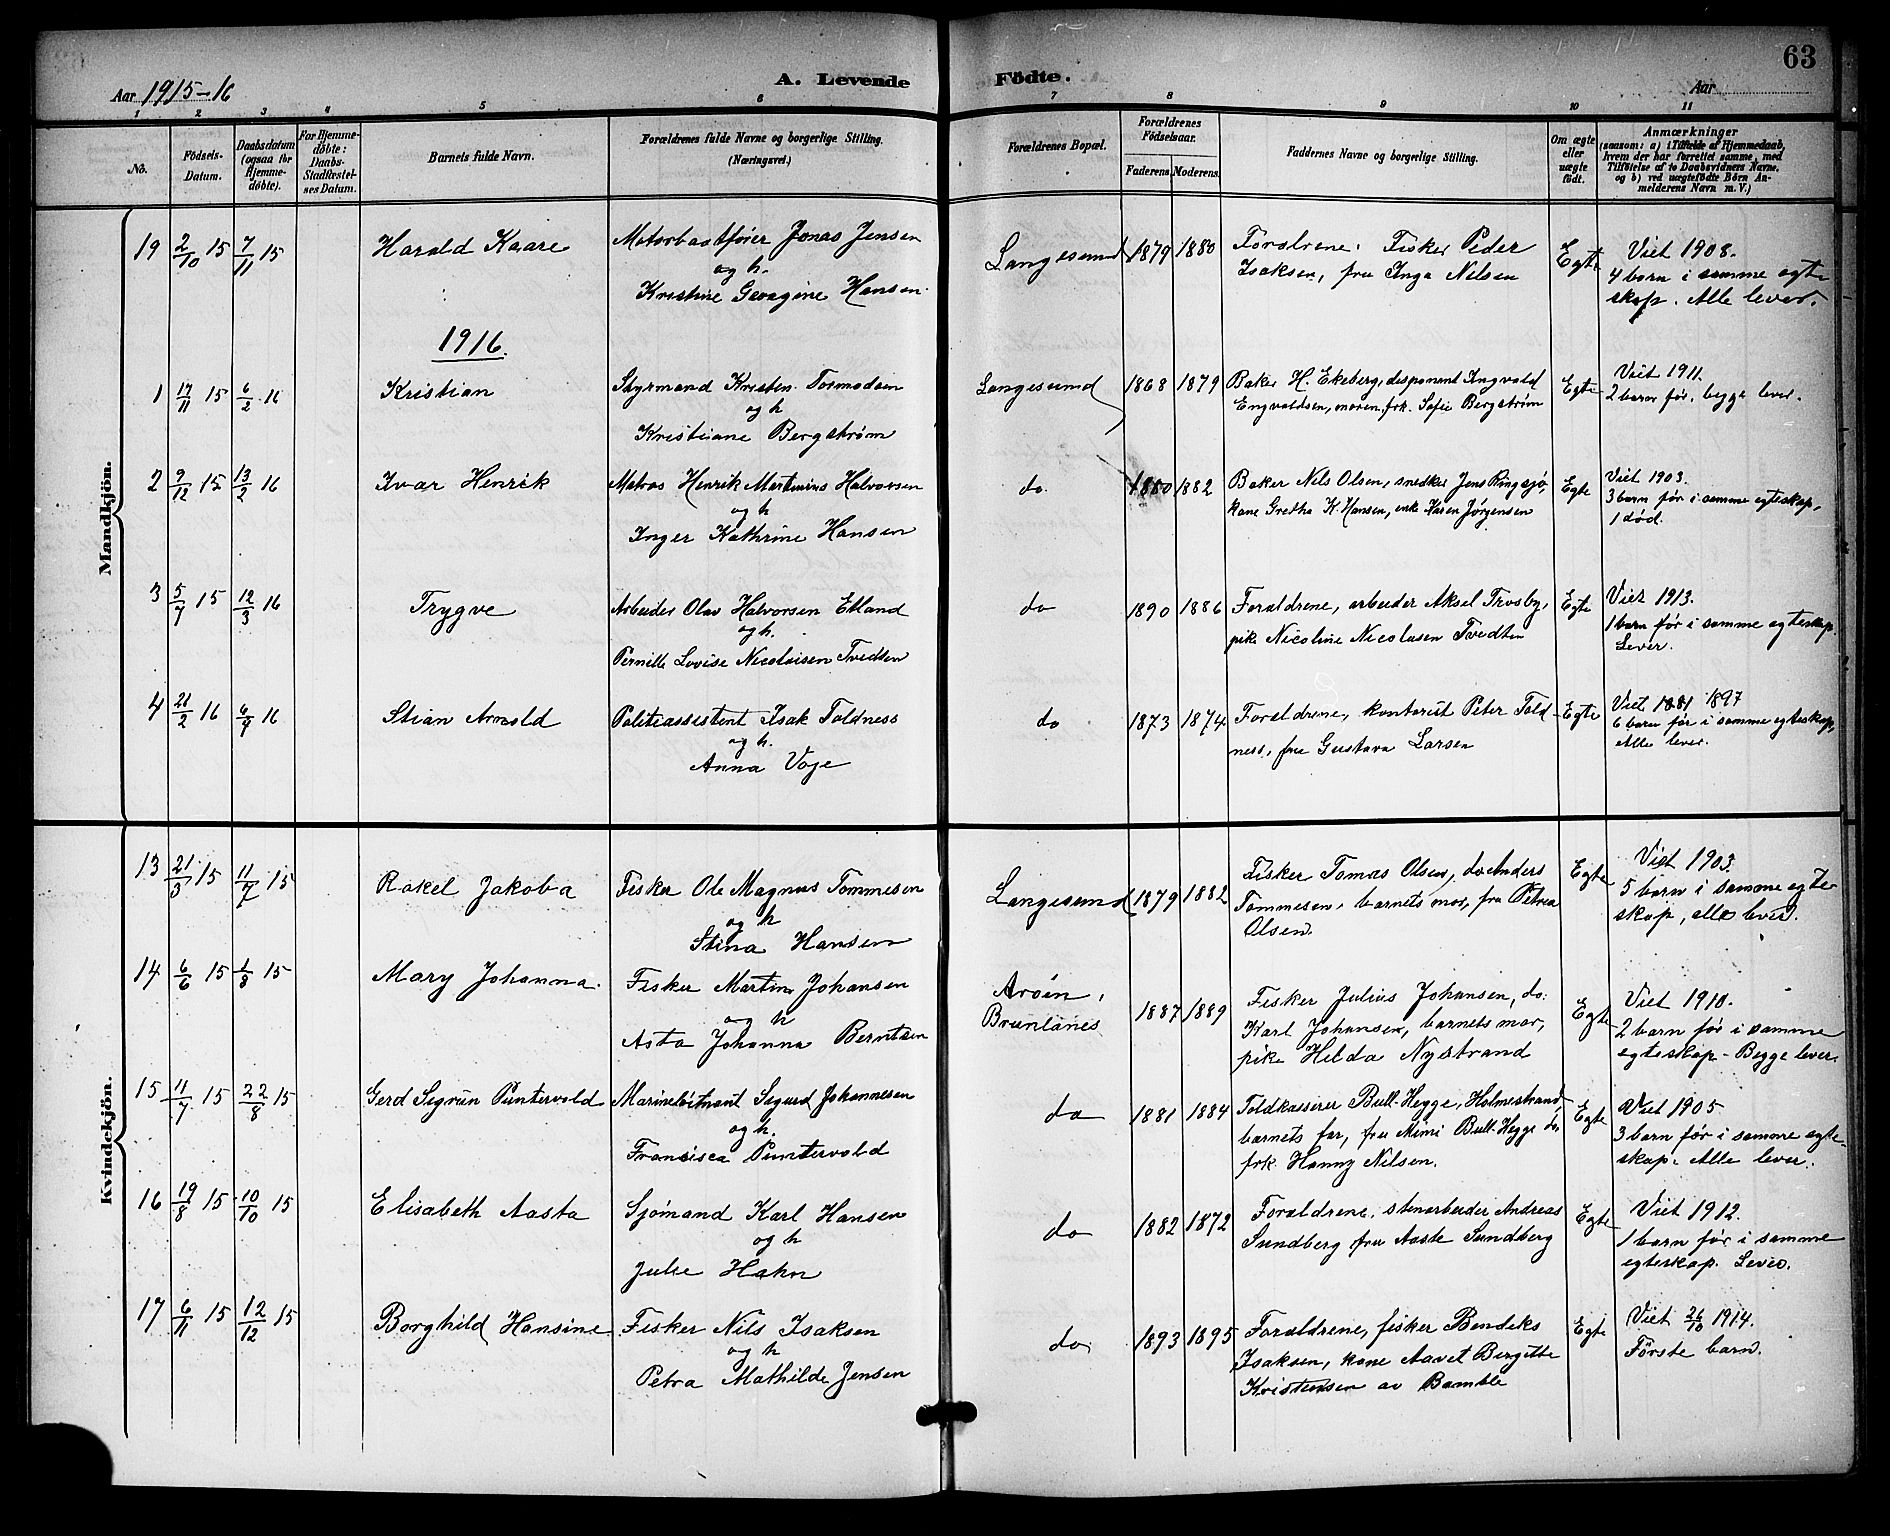 63
Aar 1915-16
A. Levende
Födte.
Aar
1 2 3 4 5 6 7 8 9 10 11
No.
Födsels-
Datum.
Daabsdatum
(ogsaa for
Hjemme-
døbte).
For Hjemme-
døbte:
Daabs-
Stadfæstel-
ses Datum.
Barnets fulde Navn.
Forældrenes fulde Navne og borgerlige Stilling.
(Næringsvei.)
Forældrenes Bopæl.
Forældrenes
Fødselsaar.
Faderens Moderens.
Faddernes Navne og borgerlige Stilling.
Om ægte
eller
uægte
født.
Anmærkninger
(saasom: a) i Tilfælde af Hjemmedaab,
hvem der har forrettet samme, med
Tilföielse af to Daabsvidners Navne,
og b) ved uægtefödte Börn An-
melderens Navn m. V.)
Mandkjön.
19 2/10 15 7/11 15 Harald Kaare
Motorbaatfører Jonas Jensen
og h.
Kristine Georgine Hansen.
Langesund 1879 1880
Foraldrene, Fisker Peder
Isaksen, fru Inga Nilsen
Egte
Viet 1908.
4 barn i samme egte
skap. Alle lever.
1916.
1 17/11 15 6/2 16 Kristian
Styrmand Kristen Tormodsen
og h
Kristiane Bergstrøm
Langesund 1868 1879
Baker H. Ekeberg, disponent Ingvald
Engvaldsen, moren, frk. Sofie Bergstrøm
Egte
Viet 1911.
2 barn før, begge lever.
2 9/12 15 13/2 16 Ivar Henrik
Matros Henrik Martinius Halvorsen
og h
Inger Kathrine Hansen
do. 1880 1882
Baker Nils Olsen, snedker Jens Ringsjø,
kone Gretha K. Hansen, enke Karen Jørgensen
Egte
Viet 1903.
3 barn før i samme egteskap,
1 død.
3 5/7 15 12/3 16 Trygve
Arbeider Olav Halvorsen Etland
og h.
Pernille Lovise Nicolaisen Tvedten
do 1890 1886
Foraldrene, arbeider Aksel Trosby,
pike Nicoline Nicolaisen Tvedten
Egte
Viet 1913.
1 barn før i samme egteskap.
Lever.
4 21/2 16 6/4 16 Stian Arnold
Politiassistent Isak Toldness
og h.
Anna Voje
do 1873 1874
Foraldrene, kontorist Peter Told-
ness, fru Gustava Larsen
Egte
Viet 1881 1897
6 barn før i samme egteskap,
Alle lever.
Kvindekjön.
13 21/3 15 11/7 15 Rakel Jakoba
Fisker Ole Magnus Tommesen
og h
Stina Hansen
Langesund 1879 1882
Fisker Tomas Olsen, do Anders
Tommesen, barnets mor, fru Petrea
Olsen.
Egte
Viet 1903.
5 barn i samme egte-
skap, alle lever.
14 6/6 15 1/8 15 Mary Johanna.
Fisker Martin Johansen
og h
Asta Johanna Berntsen
Arøen,
Brunlanes 1887 1889
Fisker Julius Johansen, do.
Karl Johansen, barnets mor,
pike Hilda Nystrand
Egte
Viet 1910.
2 barn før i samme
egteskap - Begge lever.
15 11/7 15 22/8 15 Gerd Sigrun Puntervold
Marineløitnant Sigurd Johannesen
og h.
Francisca Puntervold
do 1881 1884
Toldkasserer Bull-Hegge, Holmestrand,
barnets far, fru Mimi Bull-Hegge do,
frk. Hanny Nilsen.
Egte
Viet 1905
3 barn før i samme egte-
skap. Alle lever.
16 19/8 15 10/10 15 Elisabeth Aasta
Sjømand Karl Hansen
og h
Julie Hahn
do 1882 1872
Foraldrene, stenarbeider Andreas
Sundberg fru Aaste Sundberg
Egte
Viet 1912.
1 barn før i samme
egteskap. Lever.
17 6/11 15 12/12 15 Borghild Hansine
Fisker Nils Isaksen
og h
Petra Mathilde Jensen
do 1893 1895
Foraldrene, fisker Bendiks
Isaksen, kone Aavet Bergitte
Kristensen av Bamble
Egte
Viet 26/10 1914.
Første barn.